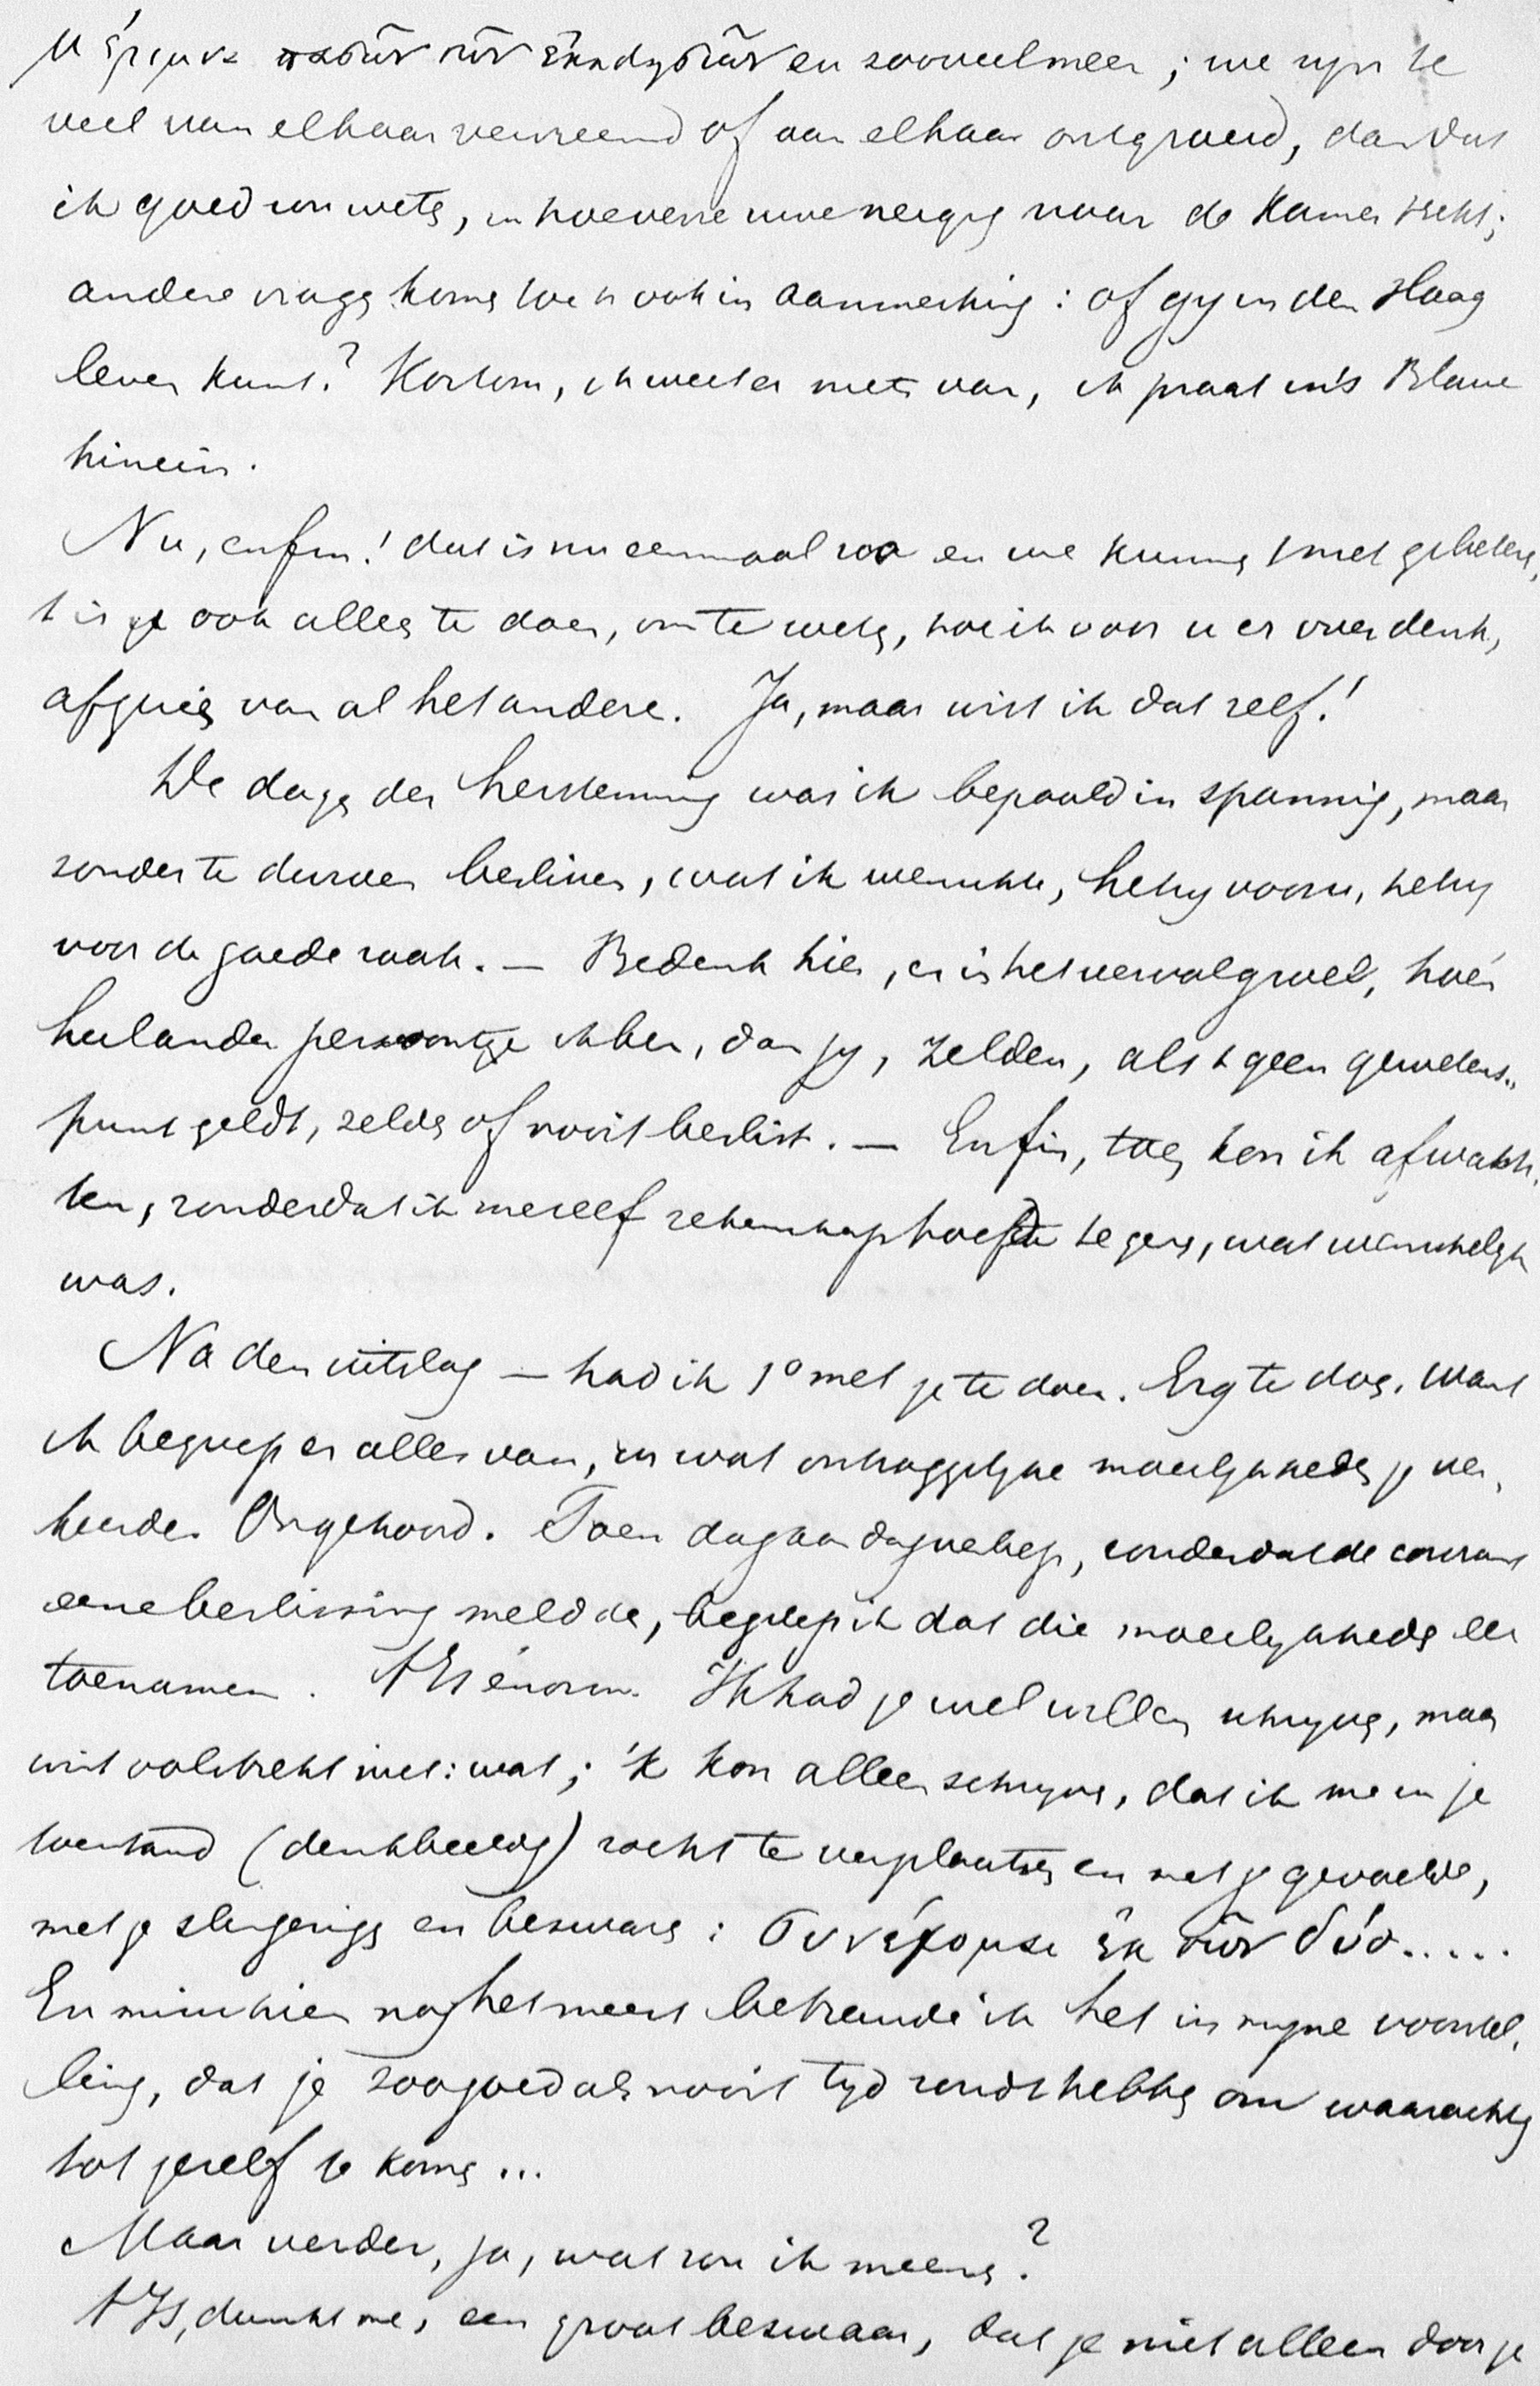 μέριμνα πασῶν τῶν ἐκκλησιῶν en zooveel meer; we zijn te
veel van elkaar vervreemd of aan elkaar ontgroeid, dan dat
ik goed zou weten, in hoeverre uwe neiging naar de Kamer trekt;
andere vragen komen toch ook in aanmerking: of gij in den Haag
leven kunt? Kortom, ik weet er niets van, ik praat in's Blaue
hinein.
Nu, enfin! dat is nu eenmaal zoo en we kunnen 't niet gebeteren,
't is je ook alles te doen, om te weten, hoe ik voor u er over denk,
afgezien van al het andere. Ja, maar wist ik dat zelf!
De dagen der herstemming was ik bepaald in spanning, maar
zonder te durven beslissen, wat ik wenschte, hetzij voor u, hetzij
voor de goede zaak. — Bedenk hier, en in het vervolg wel, hoe'n
heel ander persoontje ik ben, dan jij, zelden, als 't geen gewetens-
punt geldt, zelden of nooit beslist. — Enfin, toen kon ik afwach-
ten, zonder dat ik mezelf rekenschap hoefde te geven, wat wenschelijk
was.
Na den uitslag — had ik 1º met je te doen. Erg te doen. Want
ik begreep er alles van, in wat ontzaggelijke moeilijkheden je ver-
keerde. Ongehoord. Toen dag aan dag verliep, zonder dat de courant
eene beslissing meldde, begreep ik dat die moeilijkheden eer
toenamen. 't Is énorm. Ik had je wel willen schrijven, maar
wist volstrekt niet: wat; 'k kon alleen schrijven, dat ik me in je
toestand (denkbeeldig) zocht te verplaatsen en met je gevoelde,
met je slingerings en bezwaren: συνέχομαι ἐκ τῶν δύο.....
En misschien nog het meest betreurde ik het in mijne voorstel-
ling, dat je zoo goed als nooit tijd zoudt hebben om waarachtig
tot jezelf te komen...
Maar verder, ja, wat zou ik meenen?
't Is, dunkt me, een groot bezwaar, dat je niet alleen door je